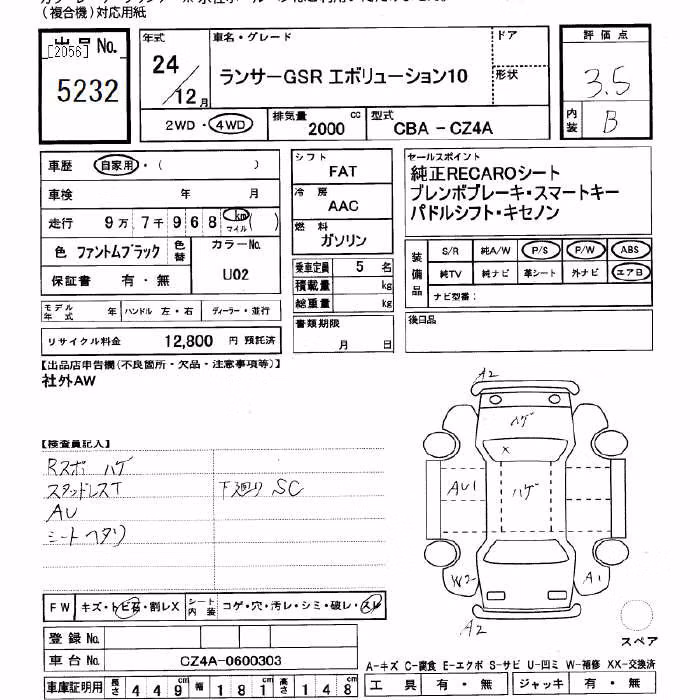 (複合機)対応用紙
出品No.
[2056]
5232
年式
24/12月
車名・グレード
ランサーGSR エボリューション10
ドア
形状
評価点
3.5
内装
B
2WD・4WD
排気量
2000 cc
型式
CBA - CZ4A
車歴 自家用・( )
車検 年 月
走行 9万 7千 9 6 8 km マイル ( )
色 ファントムブラック
色替
カラーNo.
U02
保証書 有・無
モデル年式 年 ハンドル 左・右 ディーラー・並行
リサイクル料金 12,800 円 預託済
シフト
FAT
冷房
AAC
燃料
ガソリン
乗車定員 5 名
積載量 kg
総重量 kg
書類期限
月 日
セールスポイント
純正RECAROシート
ブレンボブレーキ・スマートキー
パドルシフト・キセノン
装備品
S/R 純A/W P/S P/W ABS
純TV 純ナビ 革シート 外ナビ エアB
ナビ型番:
後日品
【出品店申告欄(不良箇所・欠品・注意事項等)】
社外AW
【検査員記入】
Rスポ ハゲ
スタッドレスT
下廻り SC
AU
シートヘタリ
A2
ハゲ
X
AU1
ハゲ
W2
A1
A2
スペア
FW キズ・トビ石・割レX
シート内装 コゲ・穴・汚レ・シミ・破レ・スレ
登録No.
車台No. CZ4A-0600303
車庫証明用 長さ 449 幅 181 高さ 148
A-キズ C-腐食 E-エクボ S-サビ U-凹ミ W-補修 XX-交換済
工具 有・無 ジャッキ 有・無